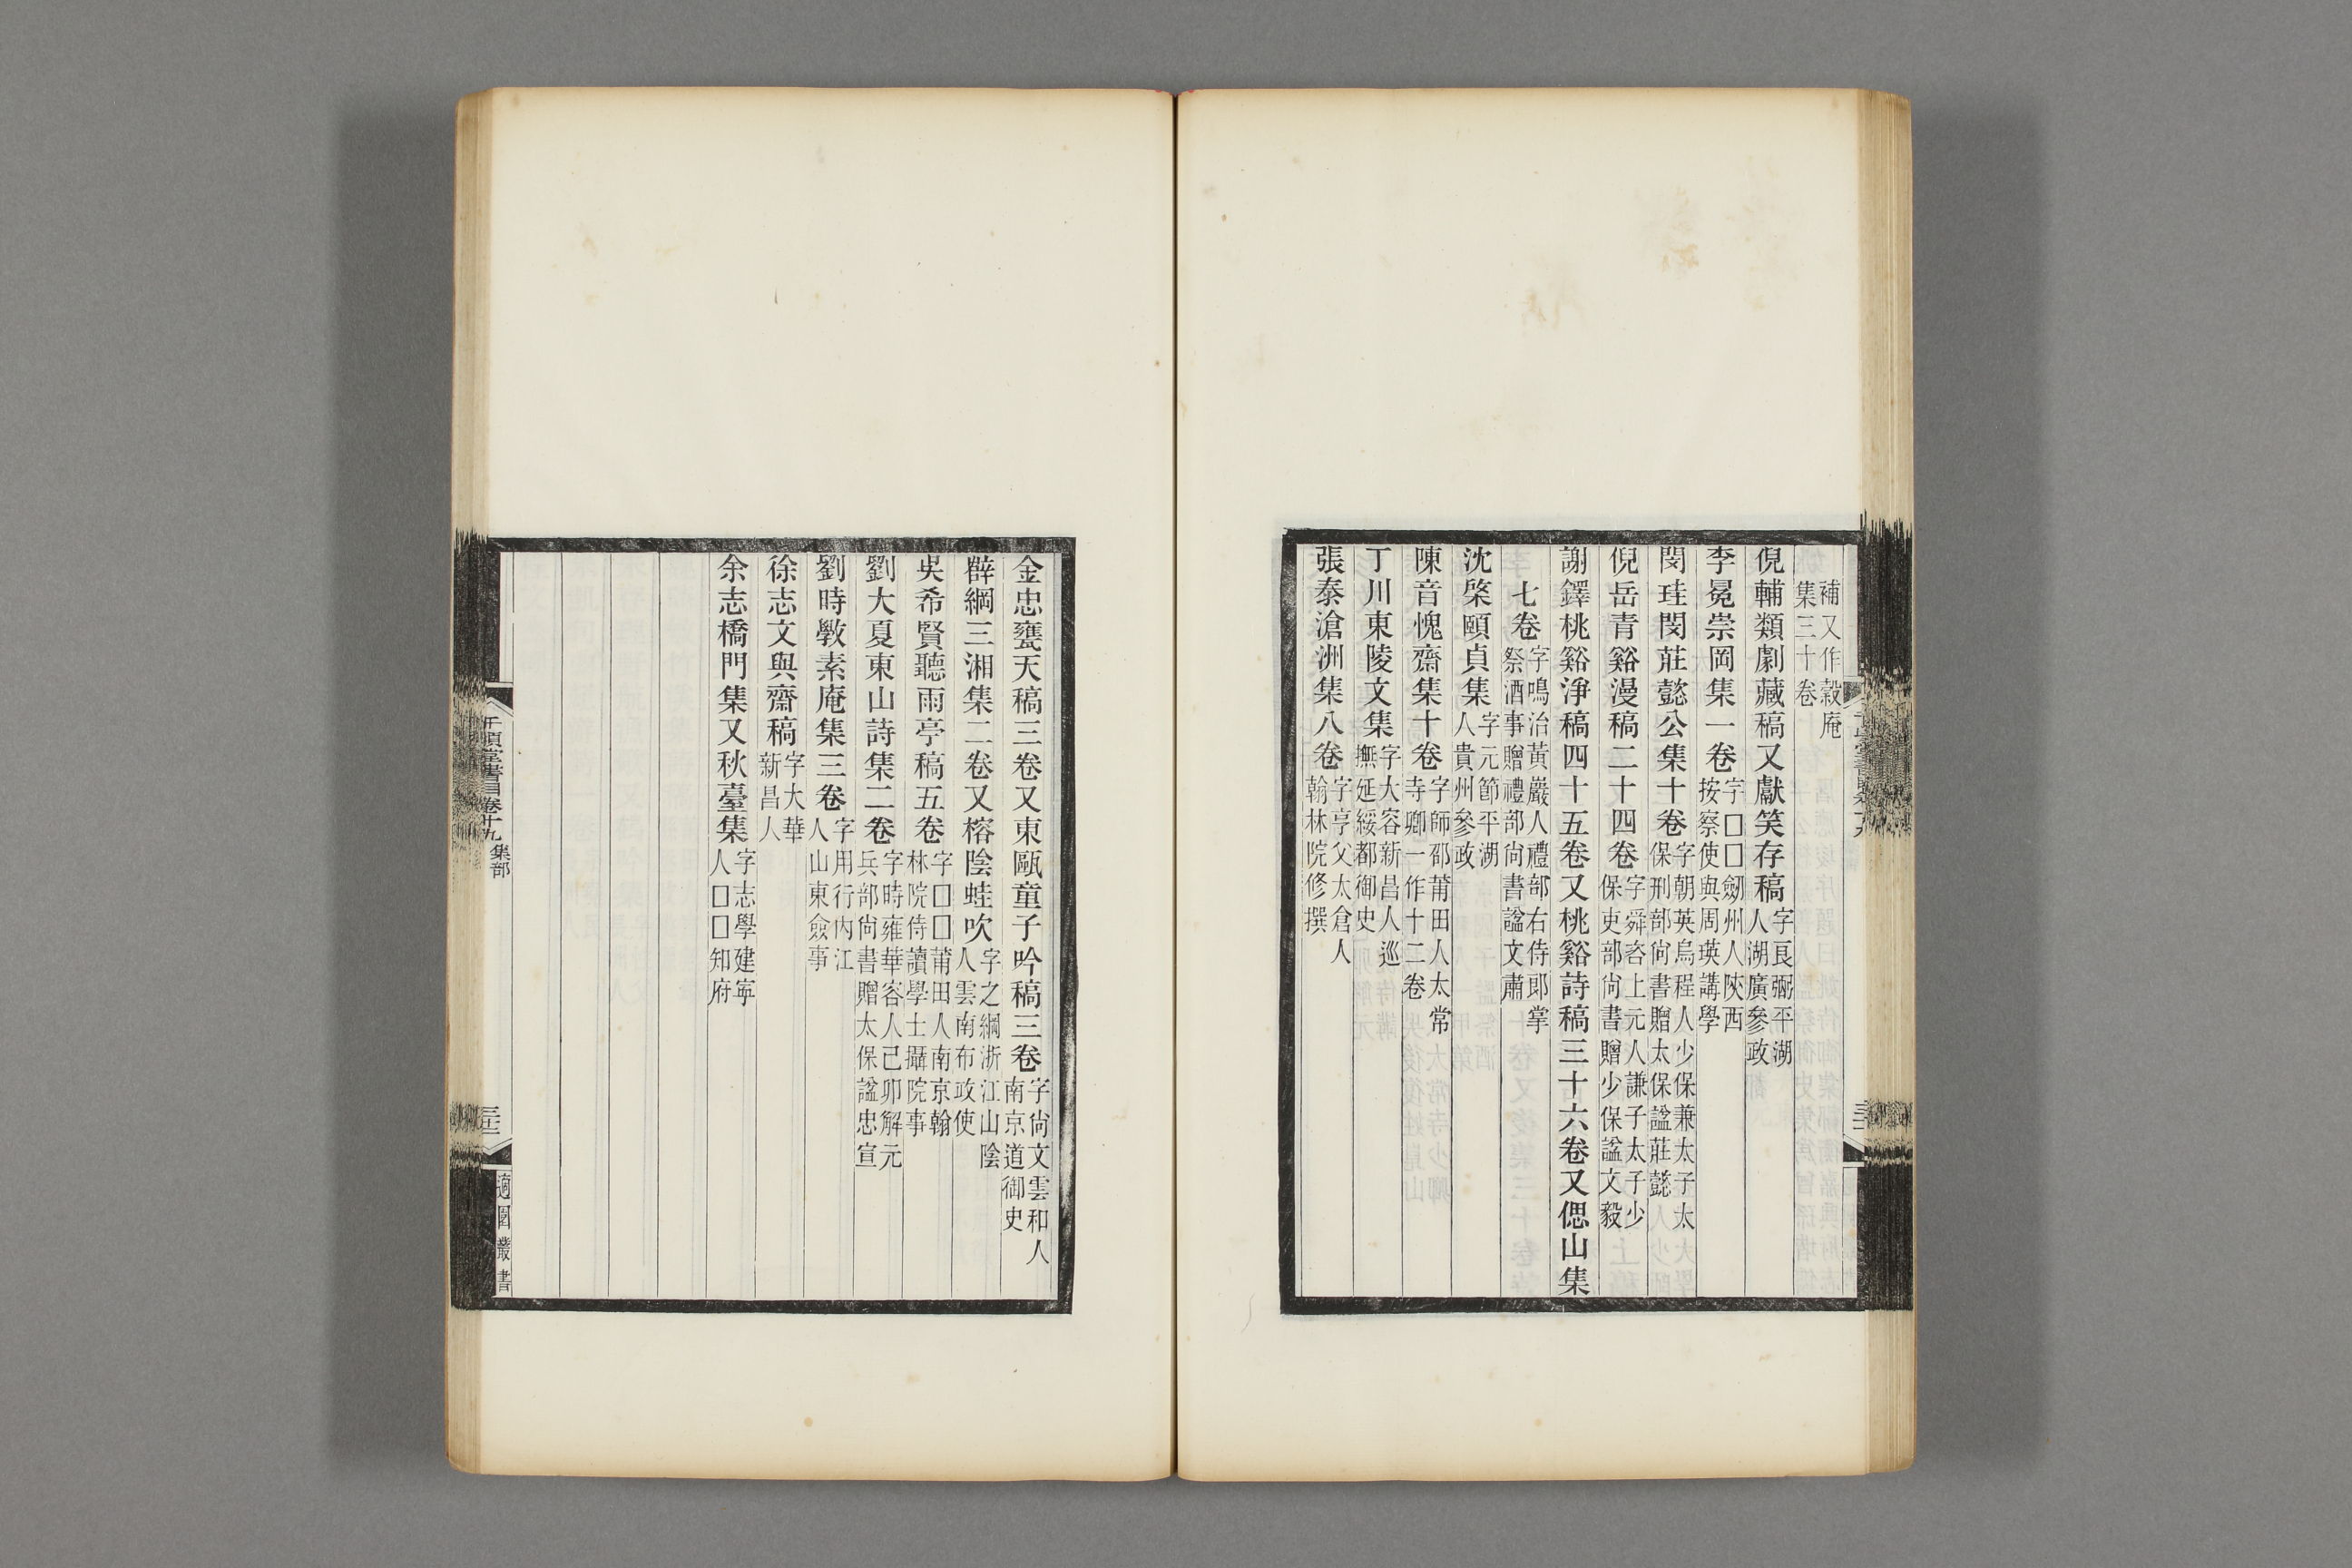 補又作穀庵
集三十卷
倪輔類劇藏稿又獻笑存稿字良弼平湖
人湖廣參政
李冕崇岡集一卷字囗囗劒州人陝西
按察使與周瑛講學
閔珪閔莊懿公集十卷字朝英烏程人少保兼太子太
保刑部尙書贈太保諡莊懿
倪岳靑谿漫稿二十四卷字舜咨上元人謙子太子少
保吏部尙書贈少保諡文毅
謝鐸桃谿淨稿四十五卷又桃谿詩稿三十六卷又偲山集
七卷字鳴治黃巖人禮部右侍郎掌
祭酒事贈禮部尙書諡文肅
沈棨頤貞集字元節平湖
人貴州參政
陳音愧齋集十卷字師邵莆田人太常
寺卿一作十二卷
丁川東陵文集字大容新昌人巡
撫延綏都御史
張泰滄洲集八卷字亨父太倉人
翰林院修撰
金忠甕天稿三卷又東甌童子吟稿三卷字尙文雲和人
南京道御史
薛綱三湘集二卷又榕陰蛙吹字之綱浙江山陰
人雲南布政使
吳希賢聽雨亭稿五卷字囗囗莆田人南京翰
林院侍讀學士攝院事
劉大夏東山詩集二卷字時雍華容人己卯解元
兵部尙書贈太保諡忠宣
劉時斆素庵集三卷字用行內江
人山東僉事
徐志文與齋稿字大華
新昌人
余志橋門集又秋臺集字志學建寧
人囗囗知府
千頃堂書目卷十九 集部
適園叢書